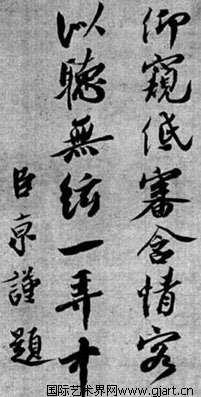 仰窺低審含情客
似聽無絃一弄中
臣京謹題
国际艺术界网 www.gjart.cn